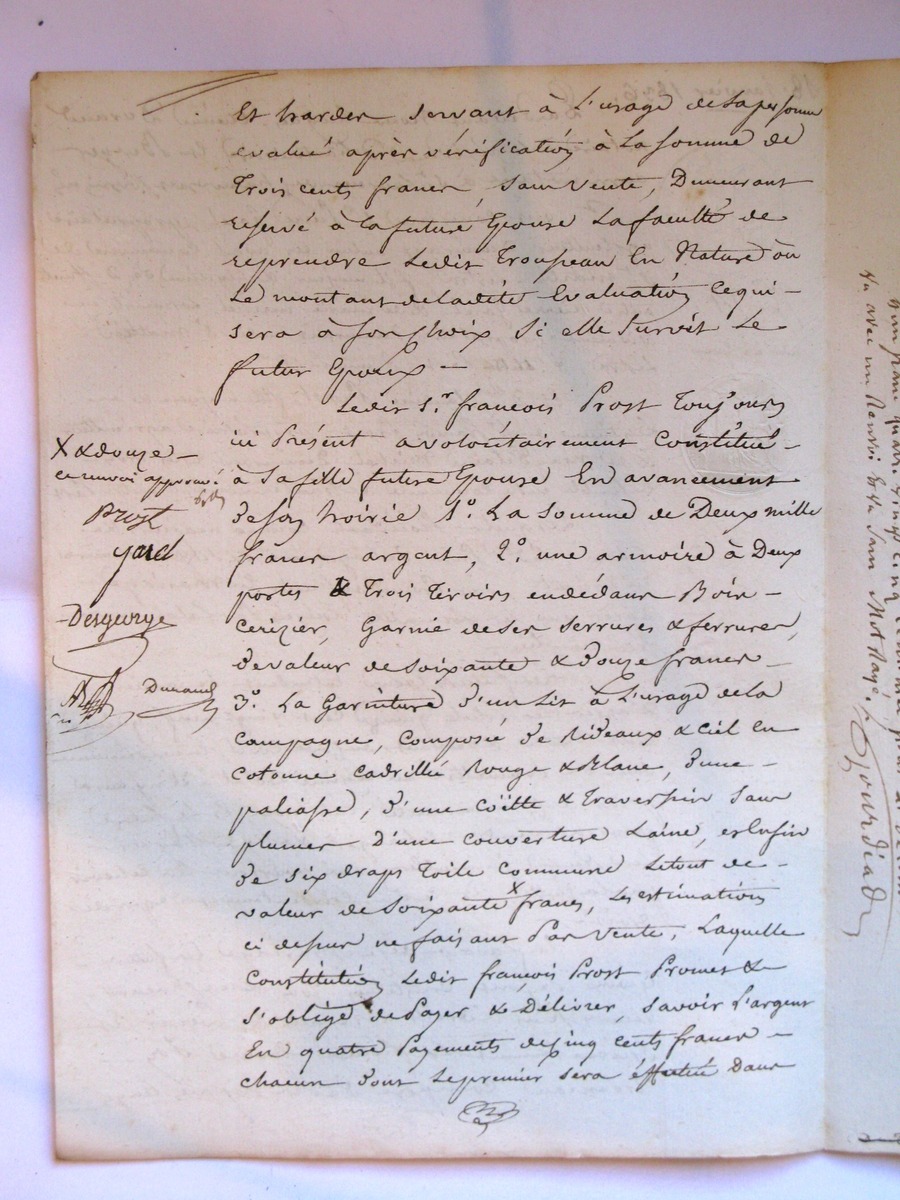 Et hardes servant à L'usage de Sa personne
evalué après vérification à La Somme de
Trois cents francs, Sans vente, Demeurant
reservé à La future Epouse La faculté de
reprendre Ledit Trousseau En Nature où
Le montant deladite Evaluation Cequi -
sera à Son Choix Si elle Survit Le
futur Epoux -
Ledit S.r françois Prost Toujours
ici Présent a volontairement Constitué -
à Safille future Epouse En avancement
de Son hoirie 1.o La Somme de Deux mille
francs argent, 2.o une armoire à Deux
portes & Trois Tiroirs endédans Bois -
Cerizier, Garnie deses Serrures & ferrures,
de valeur de Soixante & Douze francs -
3.o La Garniture d'un Lit à L'usage dela
Campagne, Composé de Rideaux & Ciel En
cotonne cadrillié Rouge & Blanc, d'une -
paliasse, d'une Coëtte & Traversin Sans
plumes D'une couverture Laine, et Enfin
de Six draps Toile Commune Letout de -
valeur de Soixante x francs, Les estimations
ci dessus ne faisant Pas vente, Laquelle
Constitution Ledit françois Prost Promet &
S'oblige de Payer & Délivrer, Savoir L'argent
En quatre Payements de Cinq Cents francs -
chacun dont Lepremier Sera éffectué Dans
X & douze -
ce renvoi approuvé
Prost
Desgeorge
Durand
Vu avec un Renvoi Et Sans Mot Rayé.